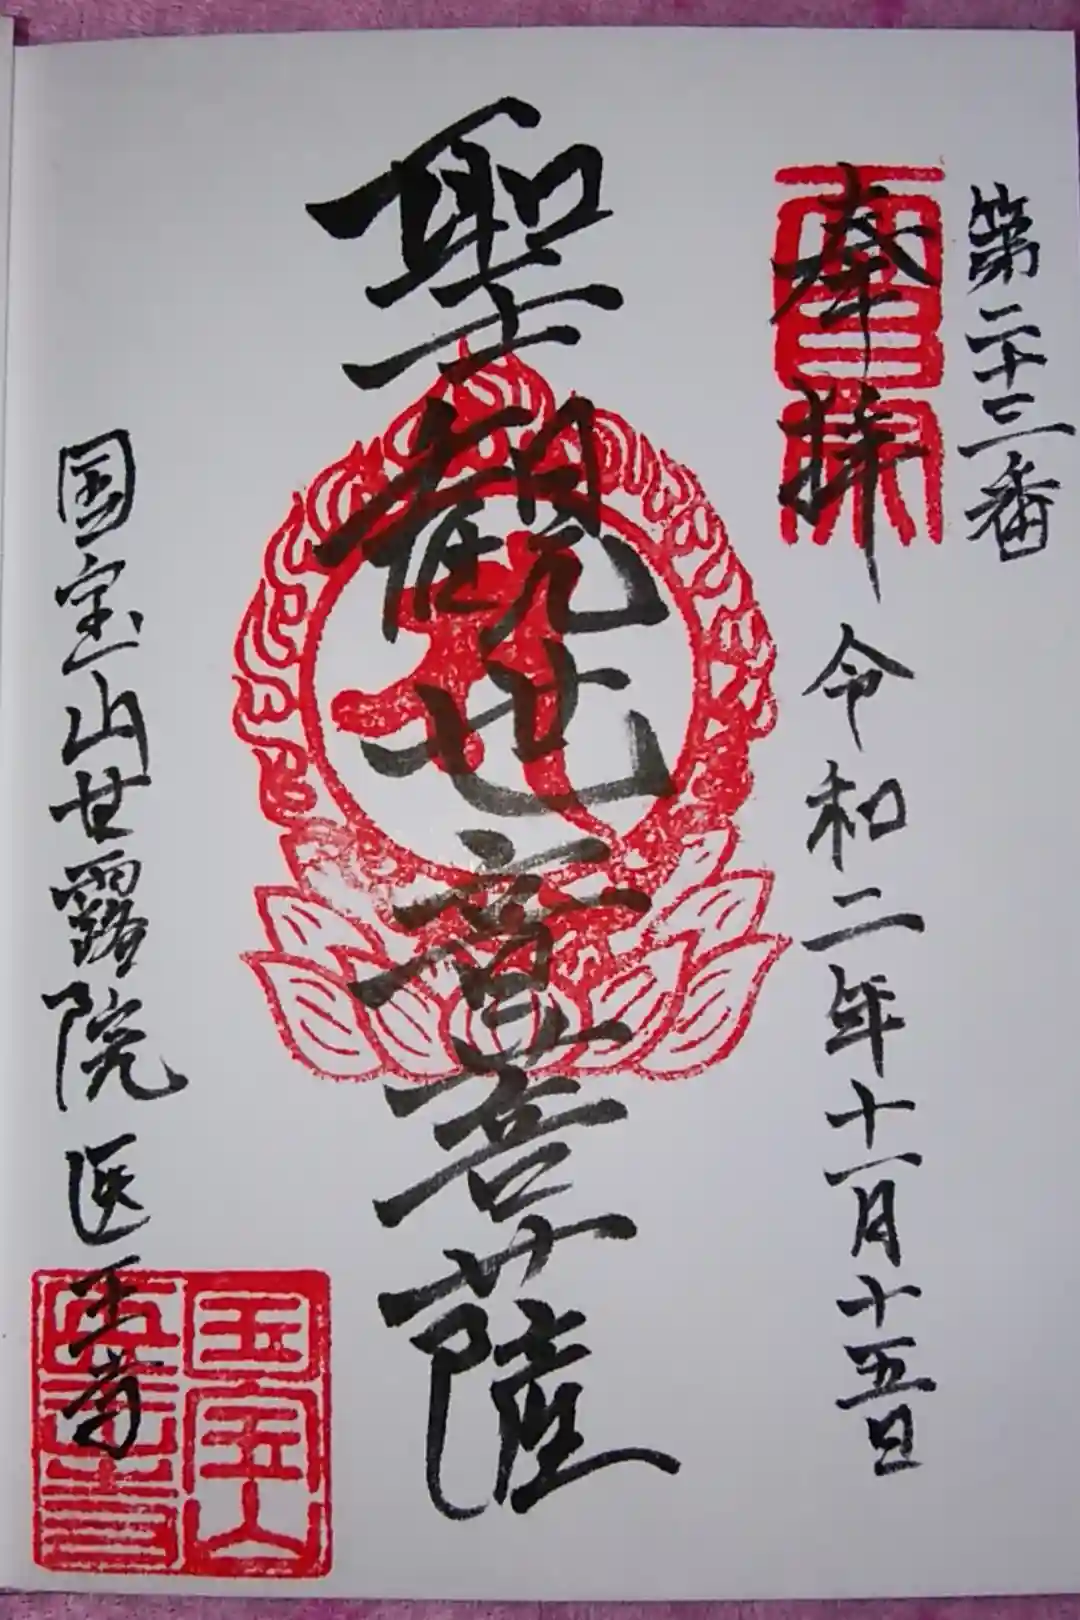 第二十三番
奉拝 令和二年十一月十五日
聖観世音菩薩
国宝山甘露院医王寺
国宝山